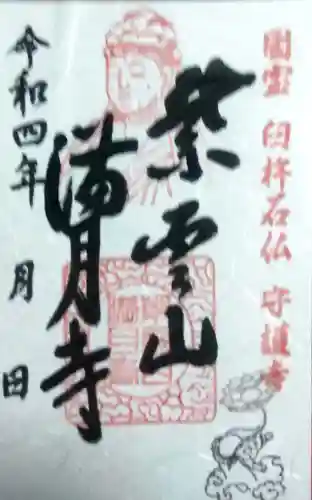 国宝 臼杵石仏 守護寺
紫雲山
満月寺
令和四年 月 日